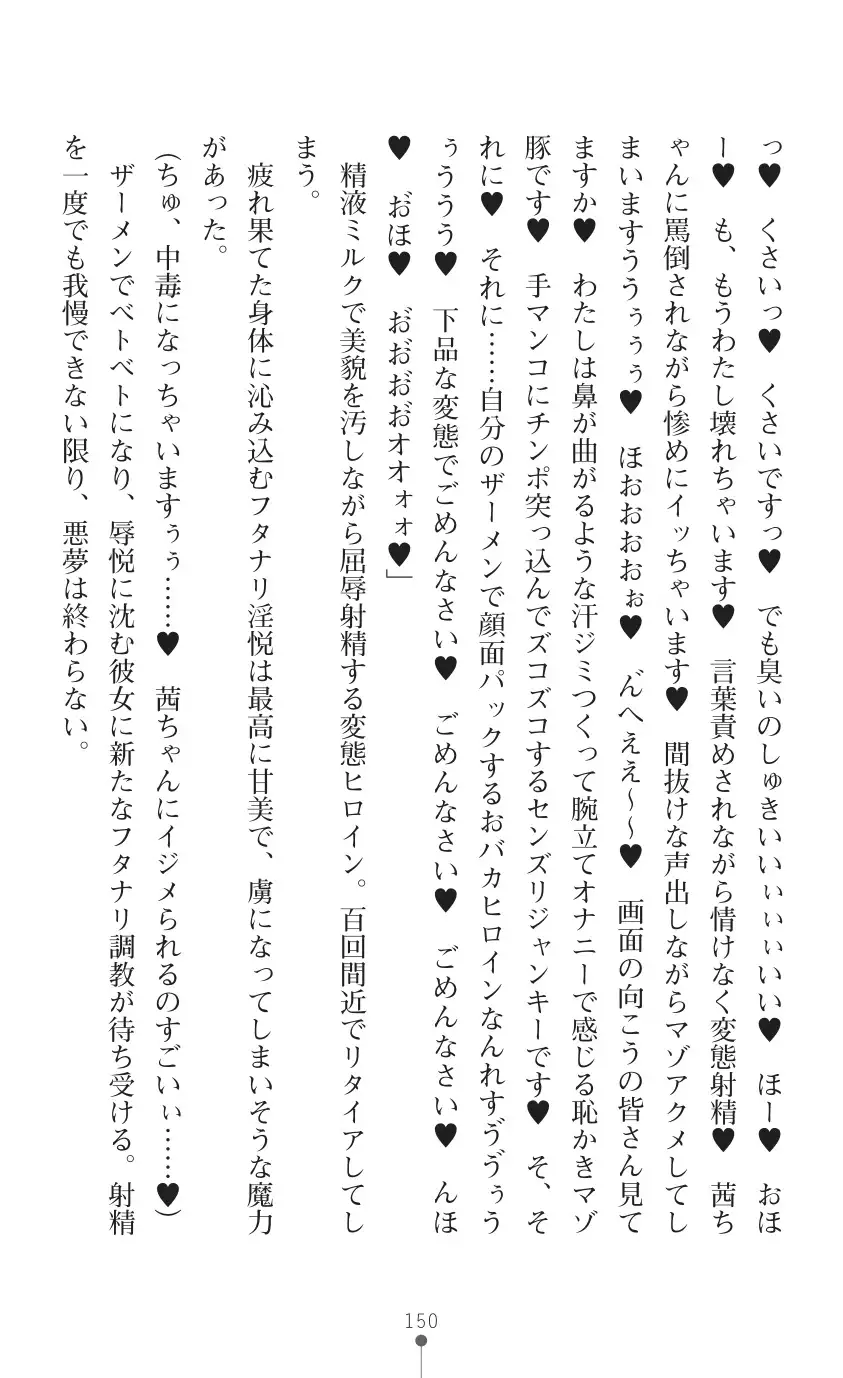 っ♥　くさいっ♥　くさいですっ♥　でも臭いのしゅきいいぃぃぃいい♥　ほー♥　おほ
ー♥　も、もうわたし壊れちゃいます♥　言葉責めされながら情けなく変態射精♥　茜ち
ゃんに罵倒されながら惨めにイッちゃいます♥　間抜けな声出しながらマゾアクメしてし
まいますううぅぅぅ♥　ほぉおおおぉ♥　ん゛へええ～～♥　画面の向こうの皆さん見て
ますか♥　わたしは鼻が曲がるような汗ジミつくって腕立てオナニーで感じる恥かきマゾ
豚です♥　手マンコにチンポ突っ込んでズコズコするセンズリジャンキーです♥　そ、そ
れに♥　それに……自分のザーメンで顔面パックするおバカヒロインなんれすゔゔぅう
ぅううう♥　下品な変態でごめんなさい♥　ごめんなさい♥　ごめんなさい♥　んほ
♥　お゛ほ♥　お゛お゛お゛お゛オオォォ♥」
　精液ミルクで美貌を汚しながら屈辱射精する変態ヒロイン。百回間近でリタイアしてし
まう。
　疲れ果てた身体に沁み込むフタナリ淫悦は最高に甘美で、虜になってしまいそうな魔力
があった。
（ちゅ、中毒になっちゃいますぅぅ……♥　茜ちゃんにイジメられるのすごいぃ……♥）
　ザーメンでベトベトになり、辱悦に沈む彼女に新たなフタナリ調教が待ち受ける。射精
を一度でも我慢できない限り、悪夢は終わらない。
150